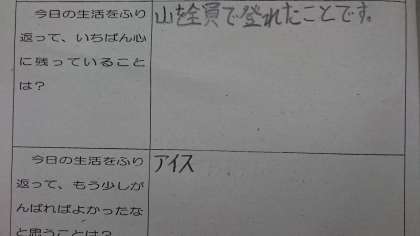 今日の生活をふり
返って、いちばん心
に残っていること
は？
山を全員で登れたことです。
今日の生活をふり
返って、もう少しが
んばればよかったな
と思うことは？
アイス